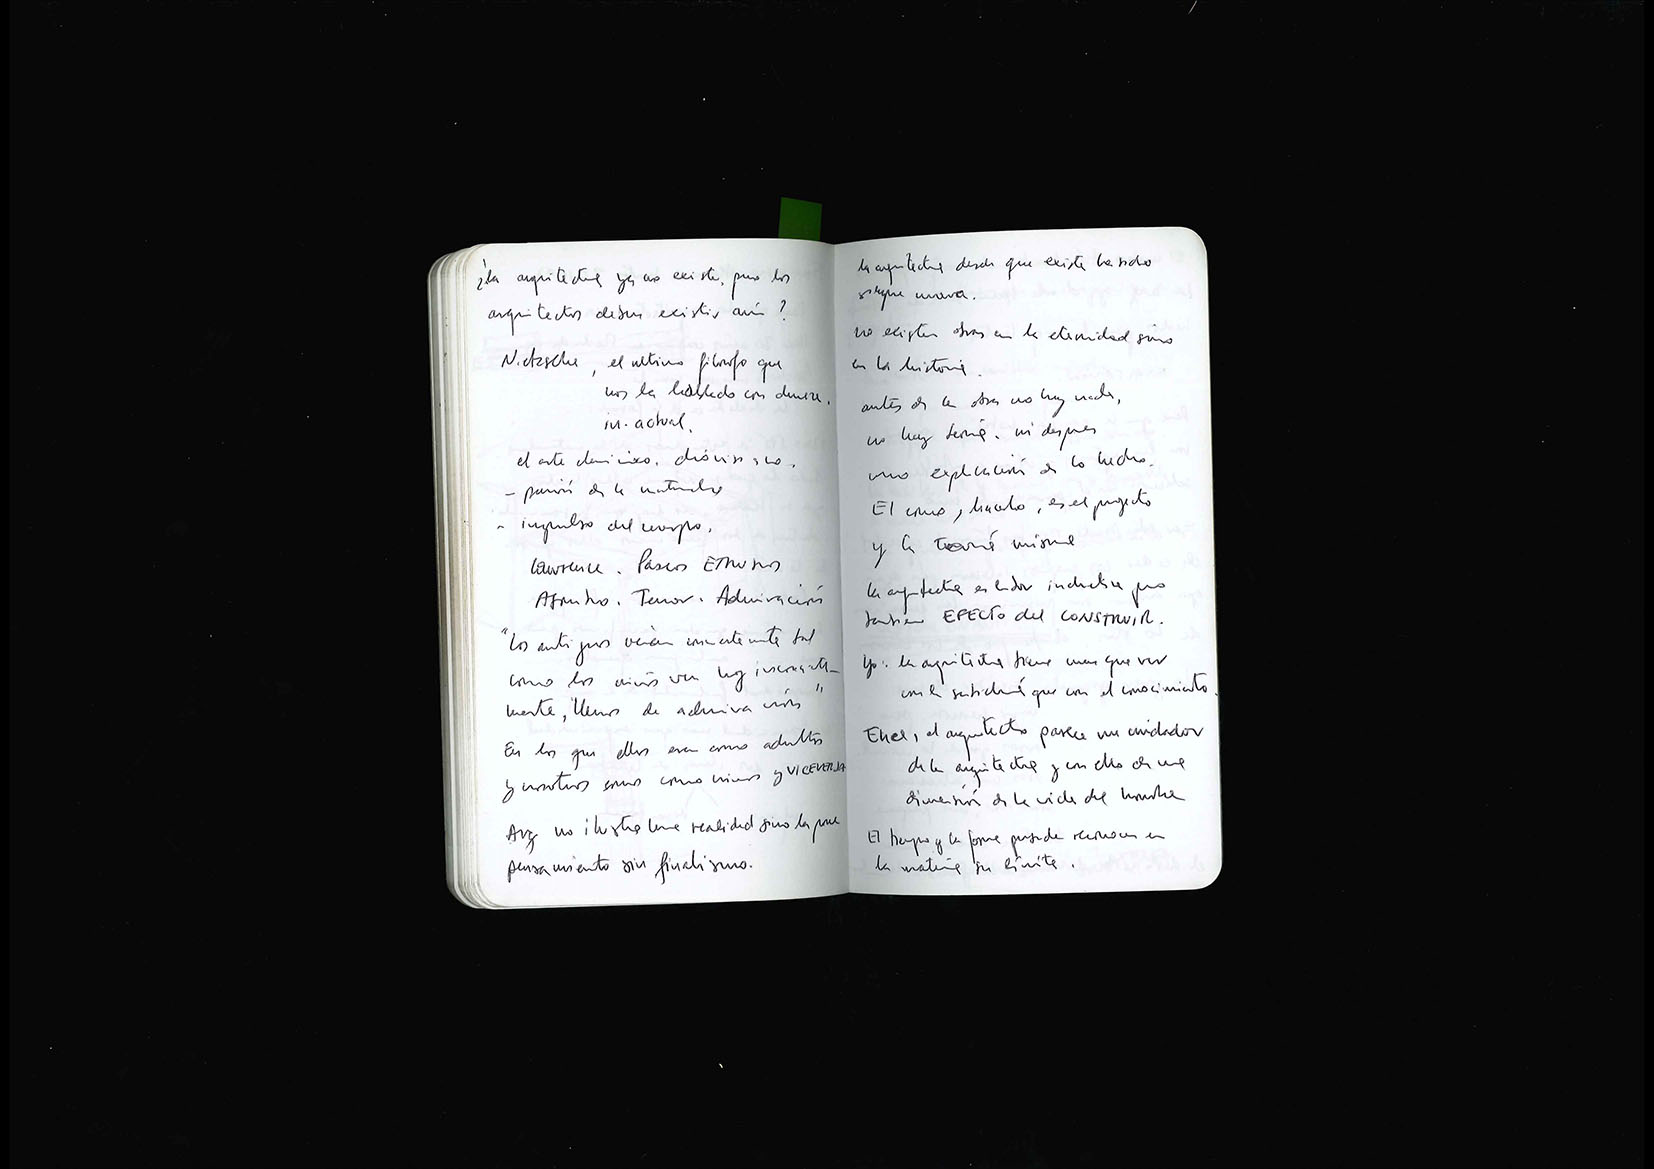 ¿la arquitectura ya no existe, pero los
arquitectos deben existir aún?
Nietzsche, el ultimo filosofo que
nos ha hablado con
in-actual.
el arte dionisiaco.
- pasión de la naturaleza
- impulso del cuerpo.
Lawrence. Paseos ETRUSCOS
Asombro. Temor. Admiración
"Los antiguos veían conscientemente tal
como los niños ven hoy inconsciente-
mente, llenos de admiración"
En los que ellos eran como adultos
y nosotros somos como niños y VICEVERSA
Arq no ilustra una realidad sino la pone
pensamiento sin finalismo.
la arquitectura desde que existe ha sido
siempre nueva.
no existen obras en la eternidad sino
en la historia.
antes de la obra no hay nada,
no hay teoría. ni despues
una explicación de lo hecho.
El como, hacerlo, es el proyecto
y la teoría misma
la arquitectura es labor intelectiva pero
tambien EFECTO del CONSTRUIR.
Yo: la arquitectura tiene mas que ver
con la sabiduría que con el conocimiento.
el arquitecto parece un cuidador
de la arquitectura y con ello de una
dimensión de la vida del hombre
El tiempo y la forma puede reconocer en
la materia su límite.